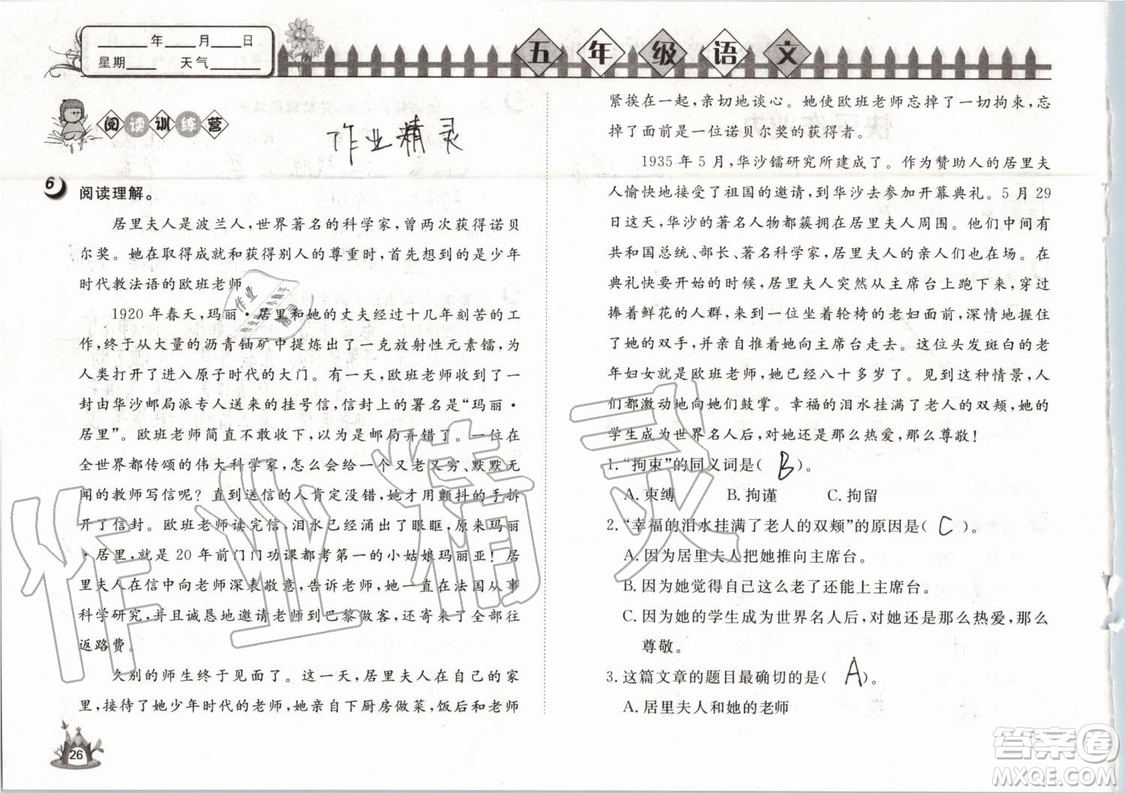 ____年____月____日
星期____ 天气____
五年级语文
阅读训练营
作业精灵
6 阅读理解。
居里夫人是波兰人,世界著名的科学家,曾两次获得诺贝
尔奖。她在取得成就和获得别人的尊重时,首先想到的是少年
时代教法语的欧班老师
1920年春天,玛丽·居里和她的丈夫经过十几年刻苦的工
作,终于从大量的沥青铀矿中提炼出了一克放射性元素镭,为
人类打开了进入原子时代的大门。有一天,欧班老师收到了一
封由华沙邮局派专人送来的挂号信,信封上的署名是“玛丽·
居里”。欧班老师简直不敢收下,以为是邮局弄错了。一个
全世界都传颂的伟大科学家,怎么会给一个又老又穷、默默无
闻的教师写信呢?直到送信的人肯定没错,她才用颤抖的手拆
开了信封。欧班老师读完信,泪水涌上了眼眶,原来玛丽
·居里,就是20年前门门功课都考第一的小姑娘玛丽亚!居
里夫人在信中向老师深表敬意,告诉老师,她正在法国从事
科学研究,并诚恳地邀请老师到巴黎做客,还寄来了往
返路费。
久别的师生终于见面了。这一天,居里夫人在自己的家
里,接待了她少年时代的老师,她亲自下厨房做菜,饭后和老师
紧挨在一起,亲切地谈心。她使欧班老师忘掉了一切拘束,忘
掉了面前是一位诺贝尔奖的获得者。
1935年5月,华沙镭研究所建成了。作为赞助人的居里夫
人愉快地接受了祖国的邀请,到华沙去参加开幕典礼。5月29
日这天,华沙的著名人物都簇拥在居里夫人周围。他们中间有
共和国总统、部长、著名科学家,居里夫人的亲人们也在场。在
典礼快要开始的时候,居里夫人忽然从主席台上跑下来,穿过
捧着鲜花的人群,来到一位坐着轮椅的老妇面前,深情地握住
了她的双手,并亲自推着她向主席台走去。这位头发斑白的老
年妇女就是欧班老师,她已经八十多岁了。看见这种情景,人
们都激动地向她们鼓掌。幸福的泪水挂满了老人的双颊,她的
学生成为世界名人后,对她还是那么热爱,那么尊敬!
1. “拘束”的同义词是( B )。
A. 束缚 B. 拘谨 C. 拘留
2. “幸福的泪水挂满了老人的双颊”的原因是( C )。
A. 因为居里夫人把她推向主席台。
B. 因为她觉得自己这么老了还能上主席台。
C. 因为她的学生成为世界名人后,对她还是那么热爱,那么
尊敬。
3. 这篇文章的题目最确切的是( A )。
A. 居里夫人和她的老师
26
作业精灵
答案圈
MXQE.COM